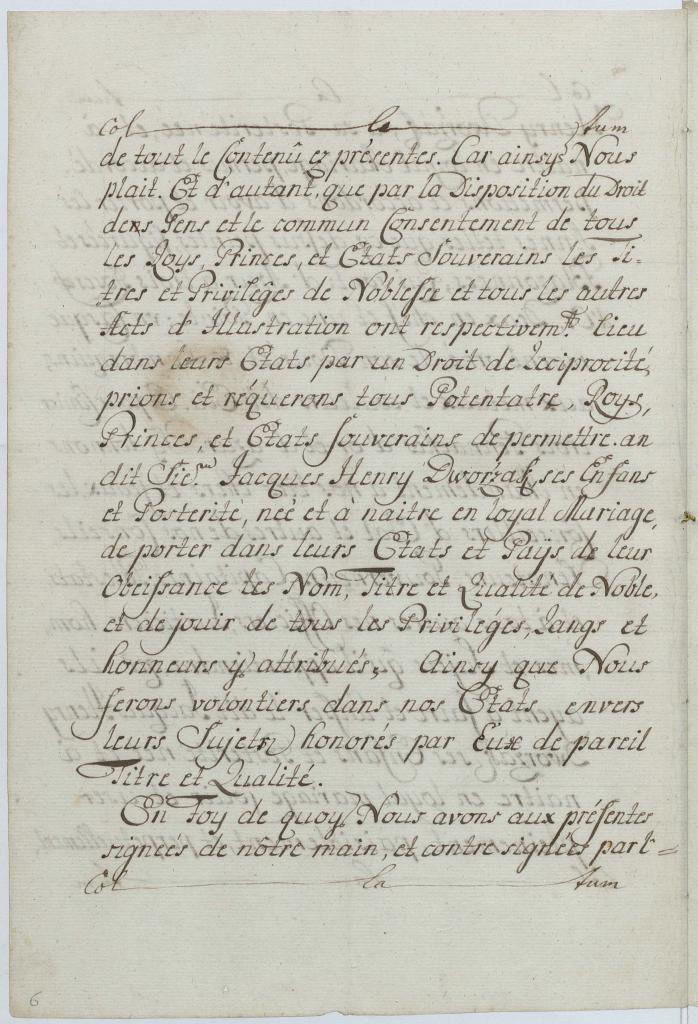 Col la tum
de tout le Contenû ez présentes. Car ainsy Nous
plait. Et d'autant, que par la Disposition du Droit
dens Gens et le commun Consentement de tous
les Roys, Princes, et Etats Souverains les Ti=
tres et Privilêges de Noblesse et tous les autres
Acts d'Illustration ont respectivem.t lieu
dans leurs Etats par un Droit de Reciprocité,
prions et réquerons tous Potentatre, Roys,
Princes, et Etats souverains de permettre. an
dit Sie.ur Jacques Henry Dworzak, ses Enfans
et Posterité, neé et à naitre en loyal Mariage,
de porter dans leurs Etats et Paÿs de leur
Obeissance les Nom, Titre et Qualité de Noble,
et de jouir de tous les Privileges, Rangs et
honneurs y attribués, Ainsy que Nous
ferons volontiers dans nos Etats envers
leurs Sujets honorés par Eux de pareil
Titre et Qualité.
En Foy de quoy Nous avons aux présentes
signeés de nôtre main, et contre signées par l'=
Col la tum
6